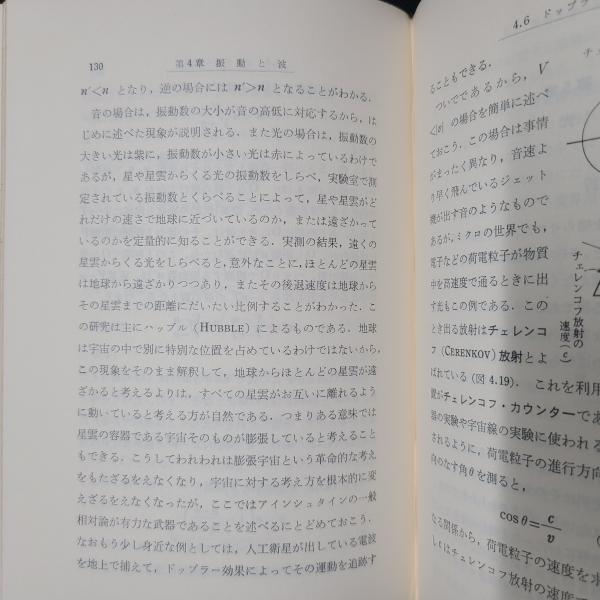 130 第4章 振動と波
n'<n となり,逆の場合には n'>n となることがわかる.
音の場合は,振動数の大小が音の高低に対応するから,は
じめに述べた現象が説明される.また光の場合は,振動数の
大きい光は紫に,振動数が小さい光は赤によっているわけで
あるが,星や星雲からくる光の振動数をしらべ,実験室で測
定されている振動数とくらべることによって,星や星雲がど
れだけの速さで地球に近づいているのか,または遠ざかって
いるのかを定量的に知ることができる.実測の結果,遠くの
星雲からくる光をしらべると,意外なことに,ほとんどの星雲
は地球から遠ざかりつつあり,またその後退速度は地球から
その星雲までの距離にだいたい比例することがわかった.こ
の研究は主にハッブル (HUBBLE) によるものである.地球
は宇宙の中で別に特別な位置を占めているわけではないから,
この現象をそのまま解釈して,地球からほとんどの星雲が遠
ざかると考えるよりは,すべての星雲がお互いに離れるよう
に動いていると考える方が自然である.つまりある意味では
星雲の容器である宇宙そのものが膨張していると考えること
もできる.こうしてわれわれは膨張宇宙という革命的な考え
をもたざるをえなくなり,宇宙に対する考え方を根本的に変
えざるをえなくなったが,ここではアインシュタインの一般
相対論が有力な武器であることを述べるにとどめておこう.
なおもう少し身近な例としては,人工衛星が出している電波
を地上で捕えて,ドップラー効果によってその運動を追跡す
4.6 ドップラー
ることもできる.
ついでであるから,V
<|v| の場合を簡単に述べ
ておこう.この場合は事情
がまったく異なり,音速よ
り早く飛んでいるジェット
機が出す音のようなもので
あるが,ミクロの世界でも,
電子などの荷電粒子が物質
中を高速度で通るときに出
す光もこの例である.この
とき出る放射はチェレンコ
フ (CERENKOV) 放射とよ
ばれている (図 4.19). これを利用
置がチェレンコフ・カウンターであ
器の実験や宇宙線の実験に使われる
されるように,荷電粒子の進行方向
向のなす角 θ を測ると,
cos θ = c/v
なる関係から,荷電粒子の速度を求
しcはチェレンコフ放射の速度で
チェレンコフ放射の
速度 (c)